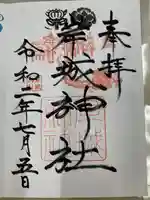 奉拝
岸城神社
令和二年七月五日